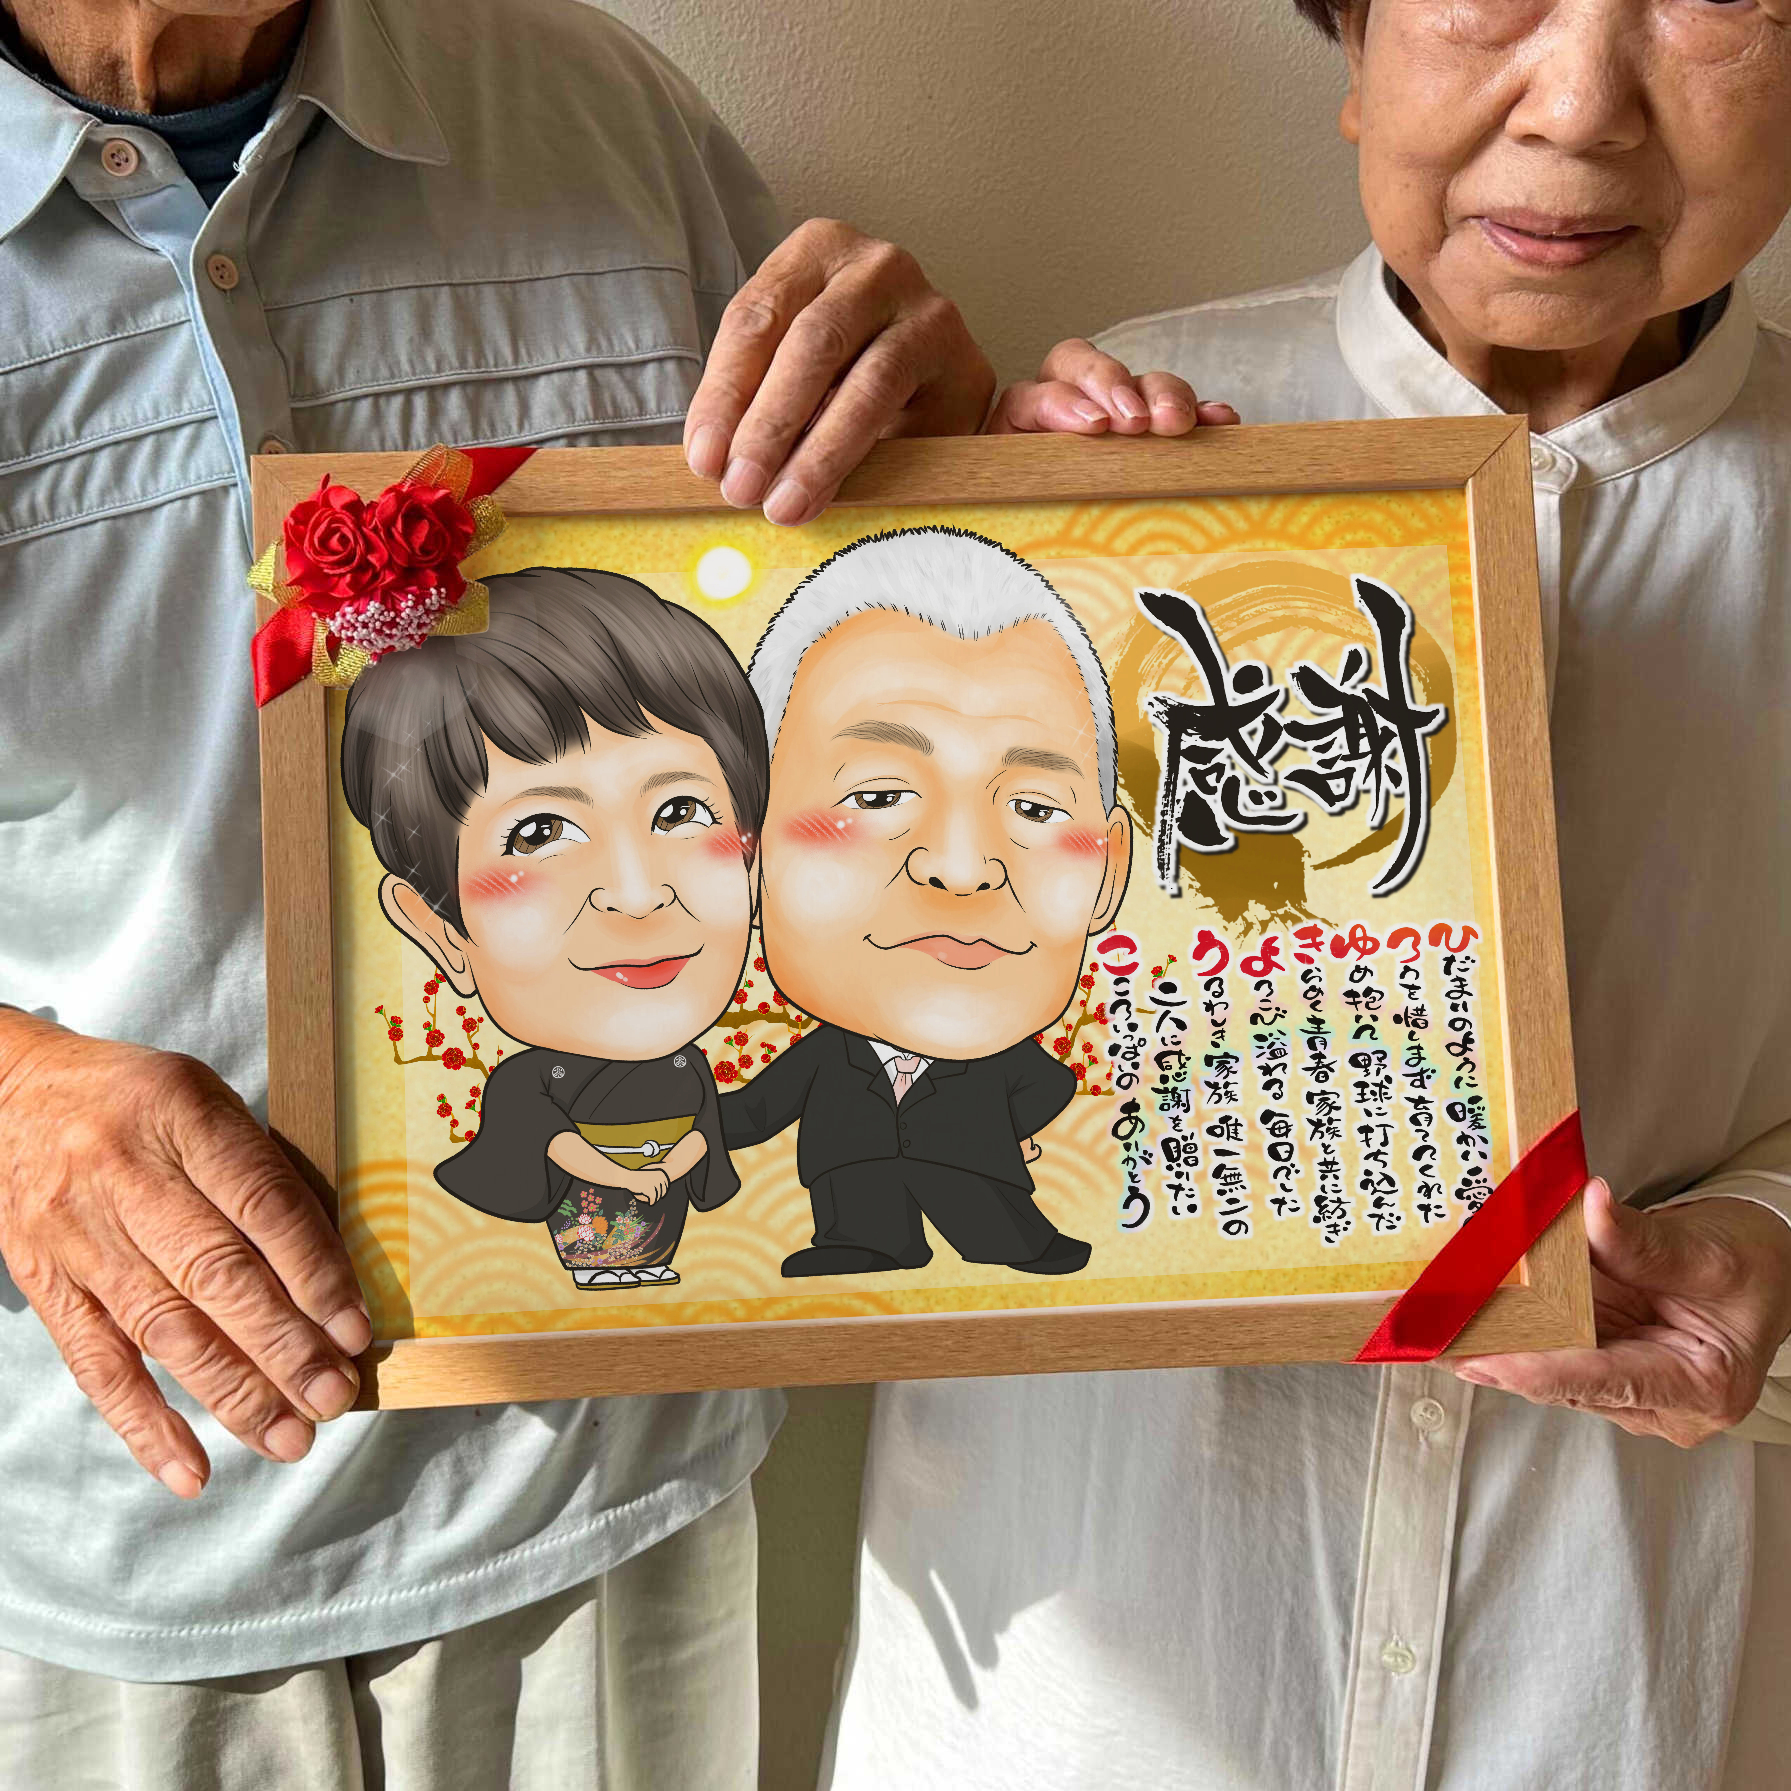 感謝
ひだまりのように暖かい愛
ろうを惜しまず育ててくれた
ゆめ抱いて野球に打ち込んだ
きらめく青春家族と共に紡ぎ
よろこび溢れる毎日でした
うるわしき家族唯一無二の
二人に感謝を贈りたい
こころいっぱいのありがとう